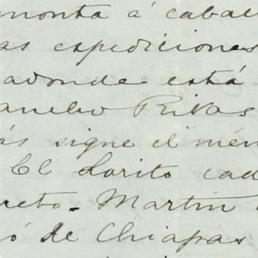 monta á caba
as expediciones
adonde está
ancho Rivas
ás sigue el mé
El Lorito ca
reto. Martín
ó de Chiapas